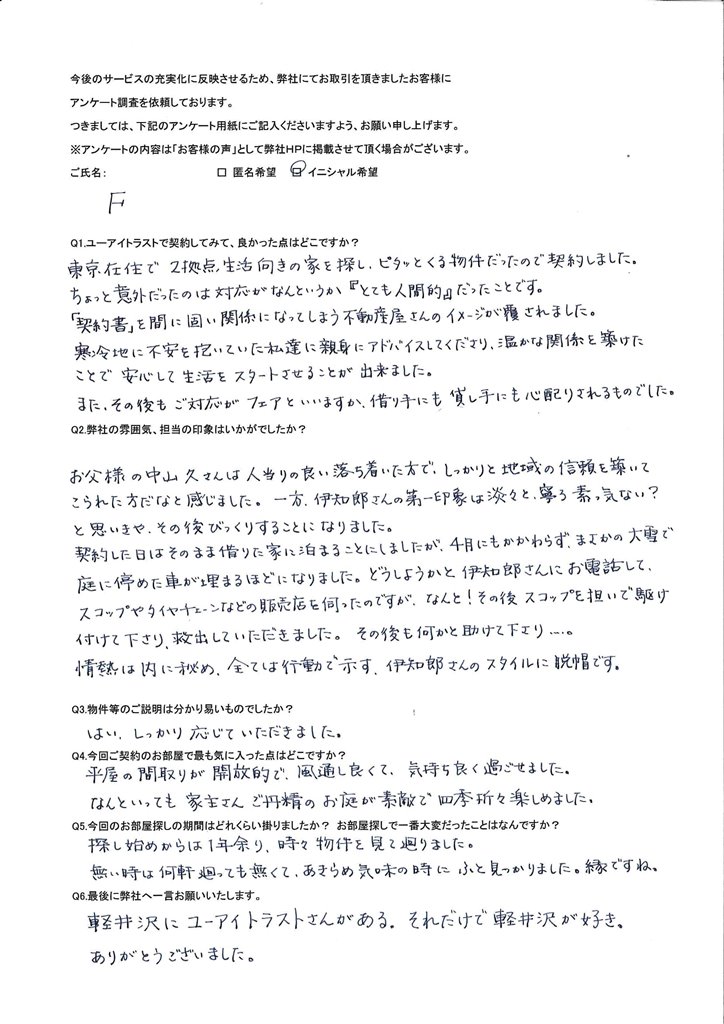 今後のサービスの充実化に反映させるため、弊社にてお取引を頂きましたお客様に
アンケート調査を依頼しております。
つきましては、下記のアンケート用紙にご記入くださいますよう、お願い申し上げます。
※アンケートの内容は「お客様の声」として弊社HPに掲載させて頂く場合がございます。
ご氏名: □ 匿名希望 □ イニシャル希望
F
Q1.ユーアイトラストで契約してみて、良かった点はどこですか？
東京在住で2拠点生活向きの家を探し、ピタッとくる物件だったので契約しました。
ちょっと意外だったのは対応がなんというか『とても人間的』だったことです。
「契約書」を間に固い関係になってしまう不動産屋さんのイメージが覆されました。
寒冷地に不安を抱いていた私達に親身にアドバイスしてくださり、温かな関係を築けた
ことで安心して生活をスタートさせることが出来ました。
また、その後もご対応がフェアといいますか、借り手にも貸し手にも心配りされるものでした。
Q2.弊社の雰囲気、担当の印象はいかがでしたか？
お父様の中山久さんは人当りの良い落ち着いた方で、しっかりと地域の信頼を築いて
こられた方だなと感じました。一方、伊知郎さんの第一印象は淡々と、寧ろ素っ気ない？
と思いきや、その後びっくりすることになりました。
契約した日はそのまま借りた家に泊まることにしましたが、4月にもかかわらず、まさかの大雪で
庭に停めた車が埋まるほどになりました。どうしようかと伊知郎さんにお電話して、
スコップやタイヤチェーンなどの販売店を伺ったのですが、なんと！その後スコップを担いで駆け
付けて下さり、救出していただきました。その後も何かと助けて下さり....。
情熱は内に秘め、全ては行動で示す、伊知郎さんのスタイルに脱帽です。
Q3.物件等のご説明は分かり易いものでしたか？
はい、しっかり応じていただきました。
Q4.今回ご契約のお部屋で最も気に入った点はどこですか？
平屋の間取りが開放的で、風通し良くて、気持ち良く過ごせました。
なんといっても家主さんご丹精のお庭が素敵で四季折々楽しめました。
Q5.今回のお部屋探しの期間はどれくらい掛りましたか？ お部屋探しで一番大変だったことはなんですか？
探し始めからは1年余り、時々物件を見て廻りました。
無い時は何軒廻っても無くて、あきらめ気味の時にふと見つかりました。縁ですね。
Q6.最後に弊社へ一言お願いいたします。
軽井沢にユーアイトラストさんがある。それだけで軽井沢が好き。
ありがとうございました。